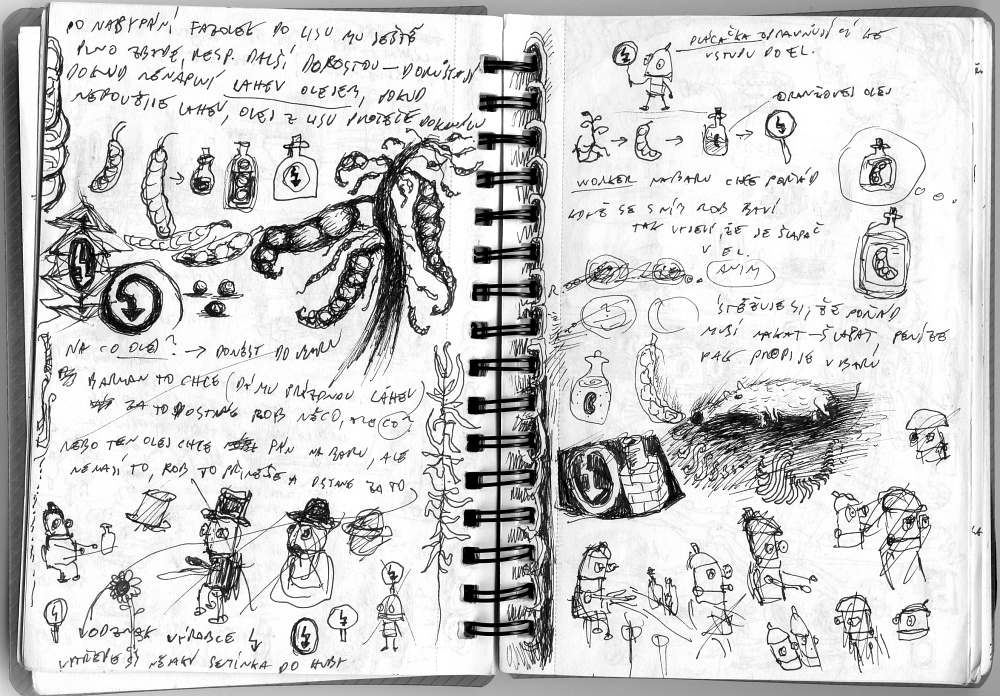 PO NASYPÁNÍ FAZOLEK DO LISU MU JEŠTĚ
PLNO ZBYDE, RESP. DALŠÍ DOROSTOU –
DOKUD NENAPLNÍ LAHEV OLEJEM, POKUD
NEPOUŽIJE LAHEV, OLEJ Z LISU PROTEČE
NA CO OLEJ? → DONÉST DO BARU
BARMAN TO CHCE (DÁ MU PRÁZDNOU LÁHEV)
ZA TO DOSTANE ROB NĚCO, ALE CO?
NEBO TEN OLEJ CHCE PÁN NA BARU, ALE
NEMAJÍ TO, ROB TO PŘINESE A DSTANE ZA TO
VODZNAK VÝROBCE
SEMÍNKA DO HUBY
PLÁCAČKA OPRAVŇUJÍCÍ KE
VSTUPU DO EL.
ORANŽOVEJ OLEJ
WORKER NA BARU CHCE POŘÁD
KDYŽ SE S NÍM ROB BAVÍ
TAK VYJEVÍ, ŽE JE ŠLAPAČ
V EL.
ANIM
STĚŽUJE SI, ŽE POŘÁD
MUSÍ MAKAT – ŠLAPAT, PENÍZE
PAK PROPIJE V BARU